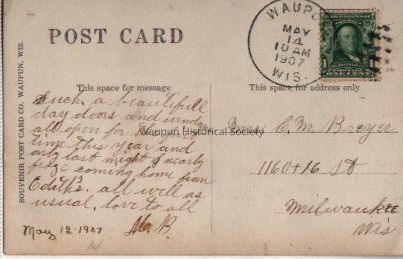 WAUPUN
MAY
14
10 AM
1907
WIS.
POST CARD
SOUVENIR POST CARD CO. WAUPUN, WIS.
This space for message
This space for address only
Such, a beautifull
day doors and windows
all open for
time this year and
only last night I nearly
froze coming home from
Edith's. all well as
usual, love to all
M B
May 12-1907
Waupun Historical Society
Mrs C. M. Breyer
1160+16 St
Milwaukee
Wis